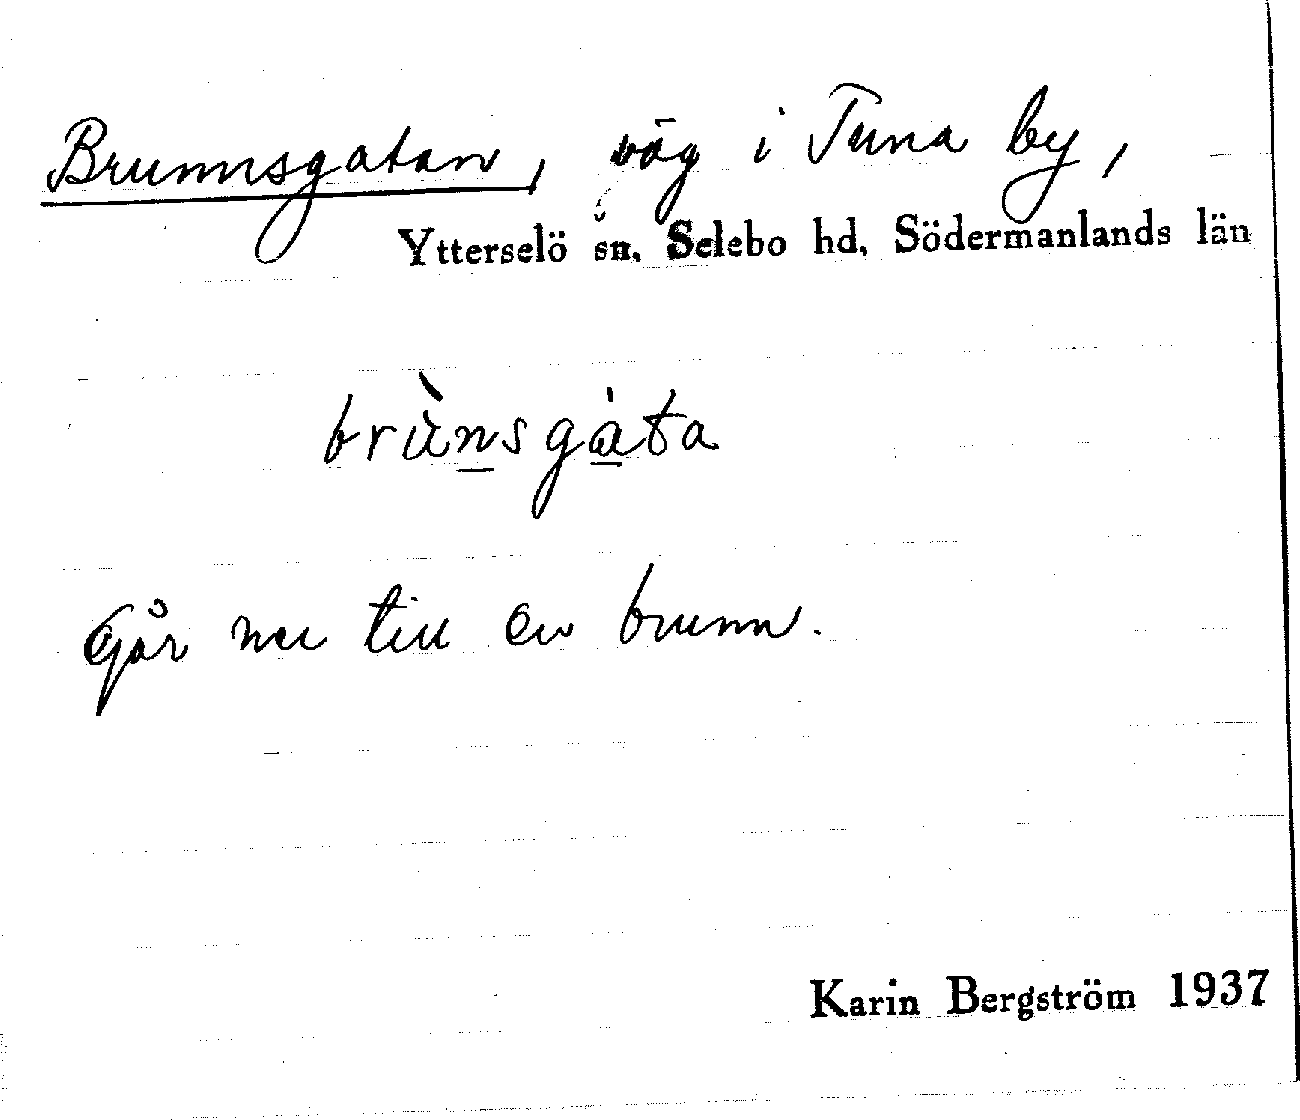 Brunnsgatan, väg i Tuna by,
Ytterselö sn. Selebo hd, Södermanlands län
brùnsgàta
Går ner till en brunn.
Karin Bergström 1937